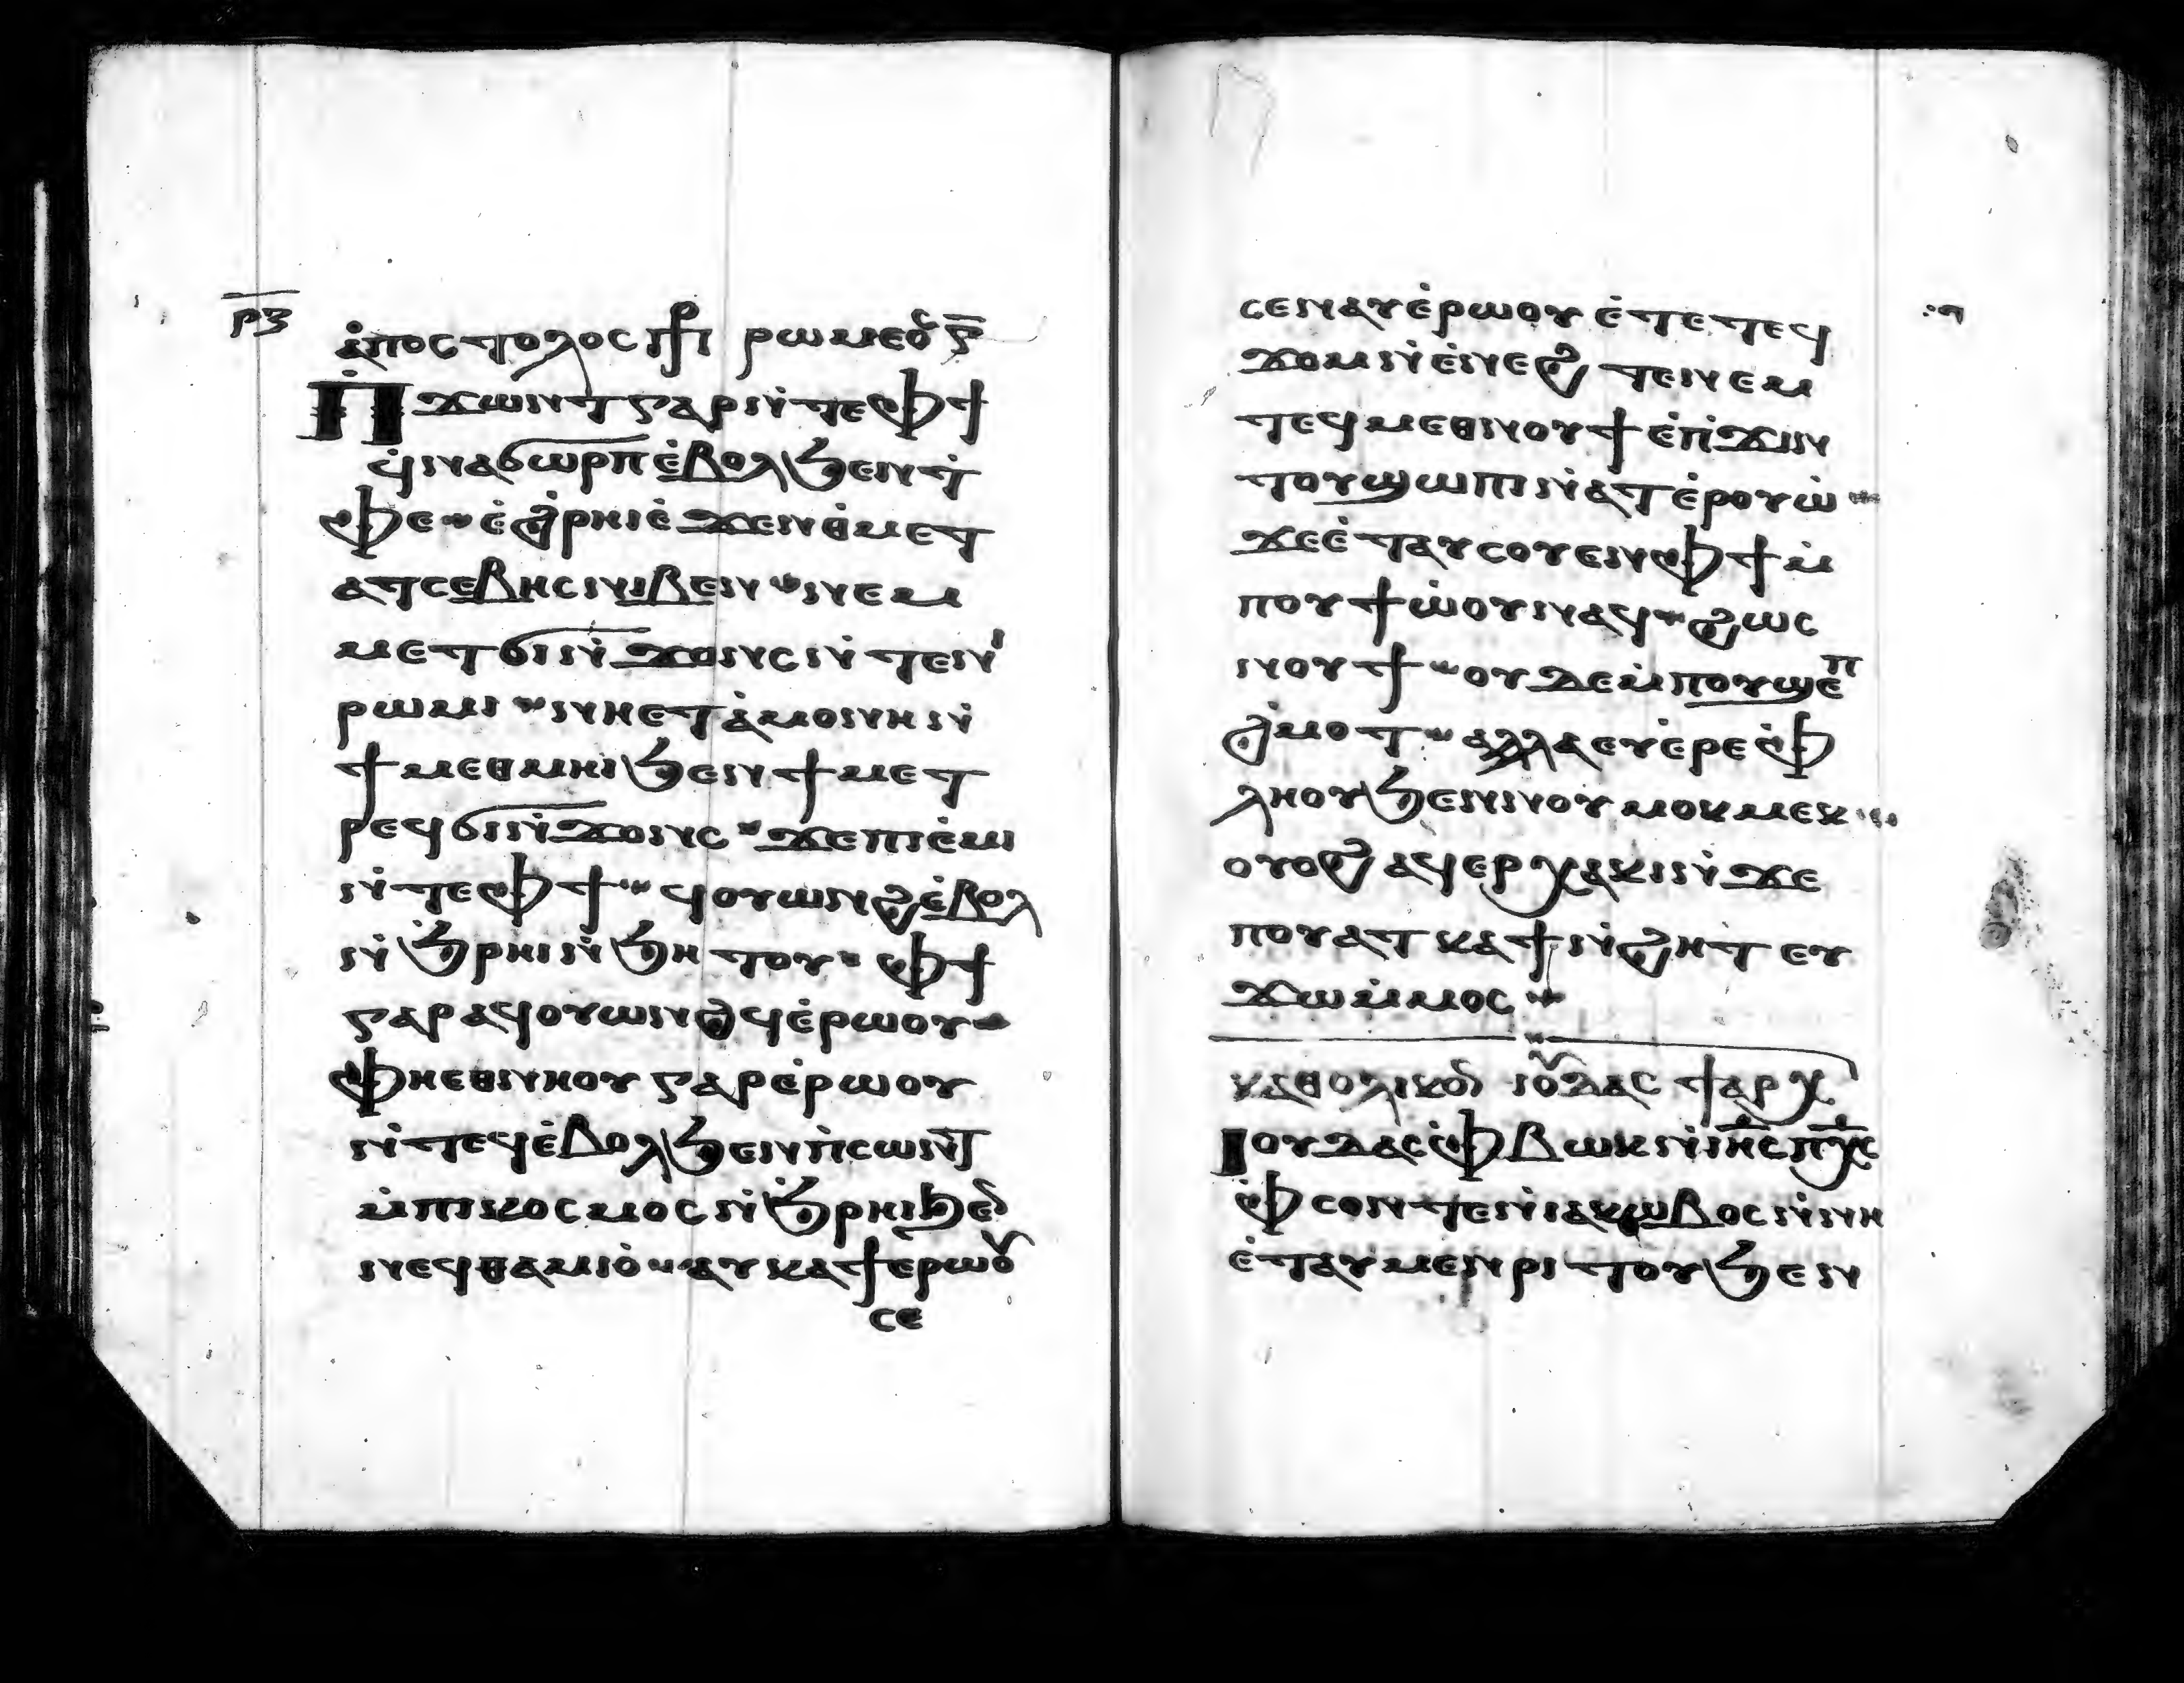 ⲣⲝ
ⲁ̇ⲡⲟⲥⲧⲟⲗⲟⲥ ⲣⲱⲙⲉⲟⲥ
Ⲡ̇ϫⲱⲛⲧ ⲅⲁⲣ ⲛ̇ⲧⲉ ⲫϯ
ϥ̇ⲛⲁϭⲱⲣⲡ ⲉ̇ⲃⲟⲗ ϧⲉⲛ ⲧ̇
ⲫⲉ ⲉ̇ϩ̇ⲣⲏⲓ ⲉ̇ϫⲉⲛ ⲑⲙⲉⲧ
ⲁⲧⲥⲉⲃⲏⲥ ⲛⲓⲃⲉⲛ ⲛⲉⲙ
ⲙⲉⲧϭⲓⲛ̇ϫⲟⲛⲥ ⲛ̇ⲧⲉ ⲛⲓ
ⲣⲱⲙⲓ ⲛⲏⲉⲧⲁ̇ⲙⲟⲛⲏ ⲛ̇
ϯⲙⲉⲑⲙⲏⲓ ϧⲉⲛ ϯⲙⲉⲧ
ⲣⲉϥϭⲓⲛ̇ϫⲟⲛⲥ ϫⲉ ⲡⲓⲉ̇ⲙⲓ
ⲛ̇ⲧⲉ ⲫϯ ϥⲟⲩⲱⲛϩ ⲉ̇ⲃⲟⲗ
ⲛ̇ϧ̇ⲣⲏⲓ ⲛ̇ϧⲏⲧⲟⲩ ⲫϯ
ⲅⲁⲣ ⲁϥⲟⲩⲱⲛϩϥ ⲉ̇ⲣⲱⲟⲩ
ⲫⲏⲉⲑⲛⲏⲟⲩ ⲅⲁⲣ ⲉ̇ⲣⲱⲟⲩ
ⲛ̇ⲧⲉϥ ⲉ̇ⲃⲟⲗ ϧⲉⲛ ⲡ̇ⲥⲱⲛⲧ
ⲙ̇ⲡⲓⲕⲟⲥⲙⲟⲥ ⲛ̇ϧ̇ⲣⲏⲓ ϧⲉⲛ
ⲛⲉϥⲑⲁⲙⲓⲟ̇ ⲁⲩⲕⲁϯ ⲉ̇ⲣⲱⲟⲩ
ⲥⲉ
ⲥⲉⲛⲁⲩ ⲉ̇ⲣⲱⲟⲩ ⲉ̇ⲧⲉ ⲧⲉϥ
ϫⲟⲙ ⲛ̇ⲉ̇ⲛⲉϩ ⲧⲉ ⲛⲉⲙ
ⲧⲉϥⲙⲉⲑⲛⲟⲩϯ ⲉ̇ⲡ̇ϫⲓⲛ
ⲧⲟⲩϣⲱⲡⲓ ⲛ̇ⲁⲧⲉ̇ⲣⲟⲩⲱ̇
ϫⲉ ⲉ̇ⲧⲁⲩⲥⲟⲩⲉⲛ ⲫϯ ⲙ̇
ⲡⲟⲩϯⲱ̇ⲟⲩ ⲛⲁϥ ϩⲱⲥ
ⲛⲟⲩϯ ⲟⲩⲇⲉ ⲙ̇ⲡⲟⲩϣⲉⲡ
ϩ̇ⲙⲟⲧ ⲁⲗⲗⲁ ⲉⲩⲉ̇ⲣⲉⲫ̇
ⲗⲏⲟⲩ ϧⲉⲛ ⲛⲟⲩⲙⲟⲕⲙⲉⲕ
ⲟⲩⲟϩ ⲁϥⲉⲣⲭⲁⲕⲓ ⲛ̇ϫⲉ
ⲡⲟⲩⲁⲧⲕⲁϯ ⲛ̇ϩⲏⲧ ⲉⲩ
ϫⲱ ⲙ̇ⲙⲟⲥ
ⲕⲁⲑⲟⲗⲓⲕⲟⲛ ⲓⲟⲩⲇⲁⲥ ϯⲁⲣⲭ
Ⲓⲟⲩⲇⲁⲥ ⲫ̇ⲃⲱⲕ ⲛ̇ⲓⲏ̅ⲥ̅ ⲡⲭ̅ⲥ̅
ⲫ̇ⲥⲟⲛ ⲧⲉ ⲛ̇ⲓⲁⲕⲱⲃⲟⲥ ⲛ̇ⲛⲏ
ⲉ̇ⲧⲁⲩⲙⲉⲛⲣⲓⲧⲟⲩ ϧⲉⲛ